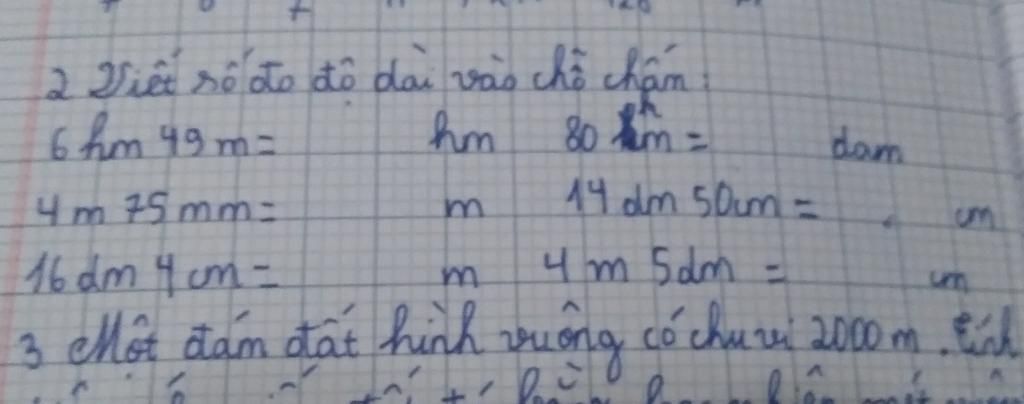 2 Viết số đo độ dài vào chỗ chấm:
6 hm 49 m = hm 80 hm = dam
4 m 75 mm = m 14 dm 50 cm = . cm
16 dm 4 cm = m 4 m 5 dm = cm
3 Một đám đất hình vuông có chu vi 2000 m. tính